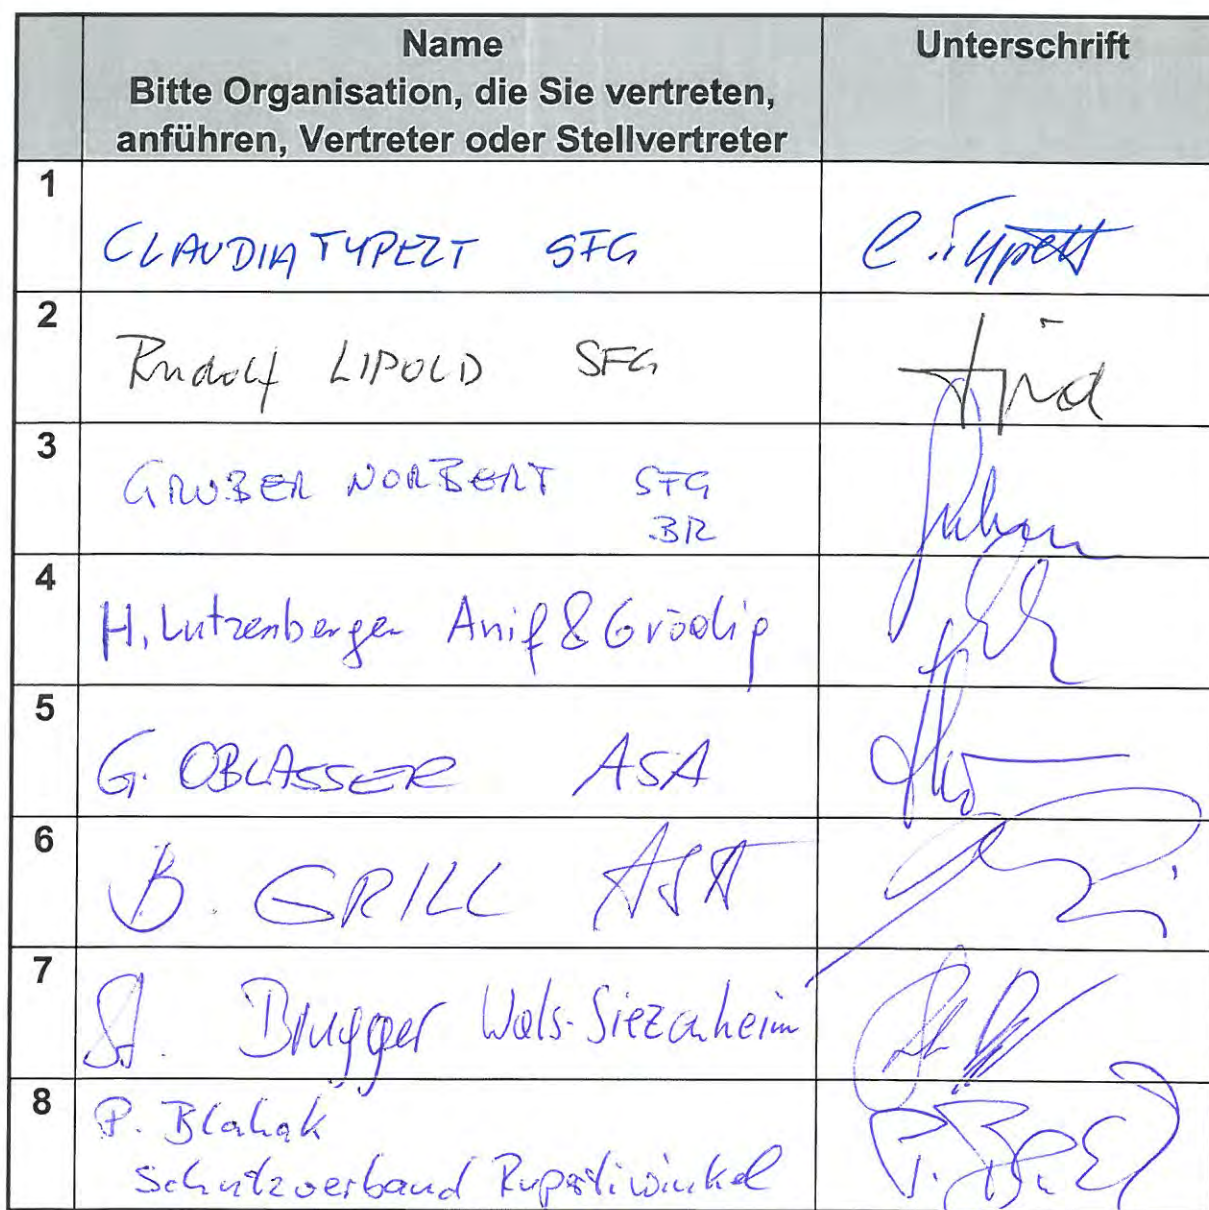 Name
Unterschrift
Bitte Organisation, die Sie vertreten,
anführen, Vertreter oder Stellvertreter
1
CLAUDIA TYPELT SFG
C. Typelt
2
Rudolf LIPOLD SFG
3
GRUBER NORBERT SFG
BR
4
H. Lutzenberger Anif & Grödig
5
G. OBLASSER ASA
6
B. GRILL ASA
7
St. Brugger Wals-Siezenheim
8
P. Blahak
Schutzverband Rupertiwinkel